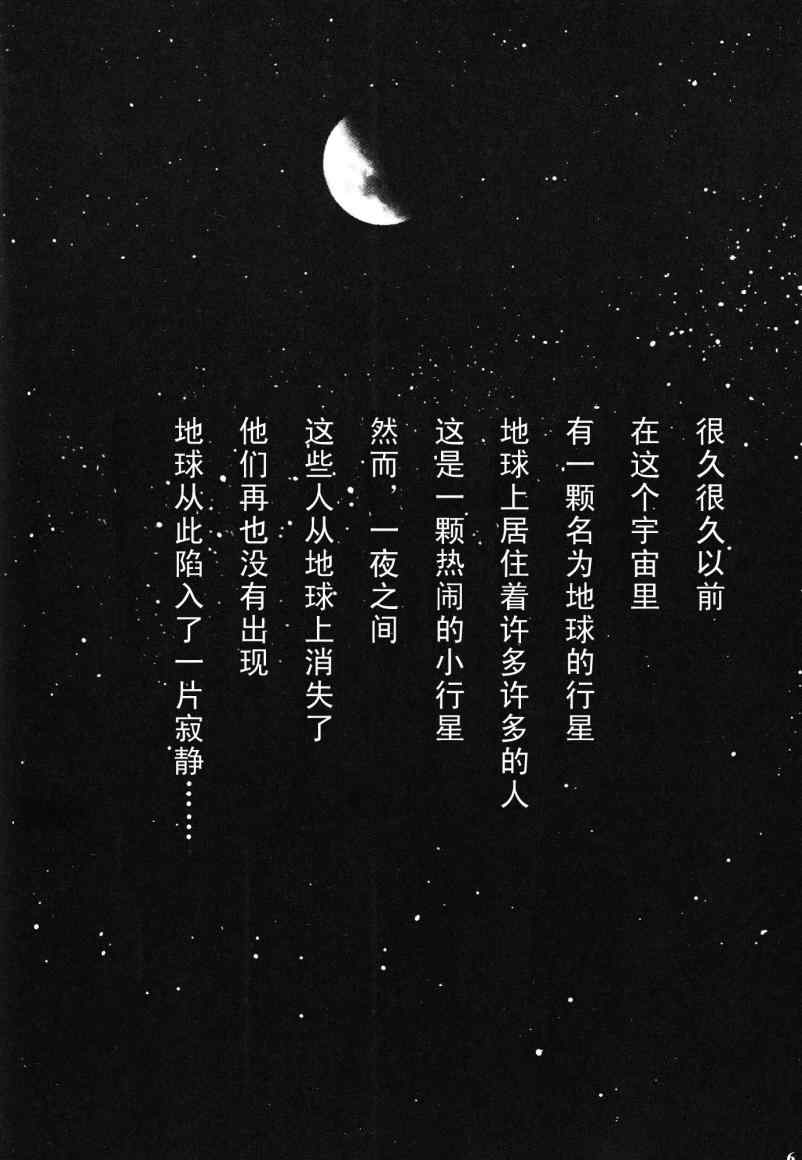 很久很久以前
在这个宇宙里
有一颗名为地球的行星
地球上居住着许多许多的人
这是一颗热闹的小行星
然而，一夜之间
这些人从地球上消失了
他们再也没有出现
地球从此陷入了一片寂静……
6